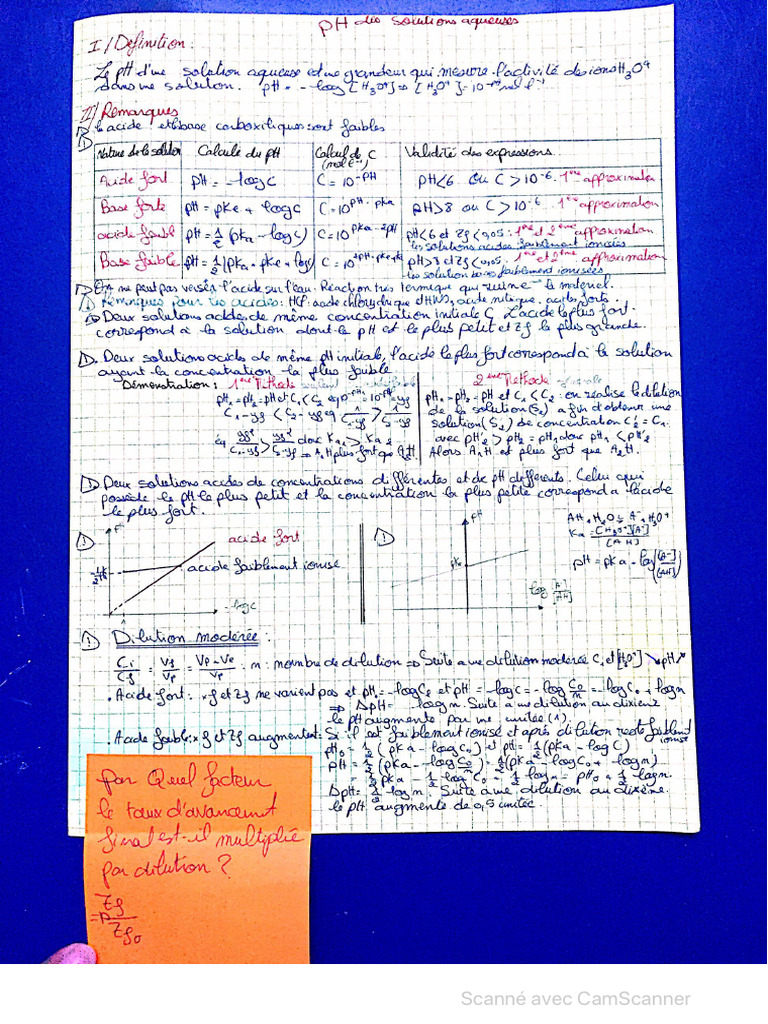 pH des solutions aqueuses
I/ Definition.
Le pH d'une solution aqueuse est une grandeur qui mesure l'activité des ions H3O+
dans une solution. pH = -log[H3O+] => [H3O+] = 10^-pH mol l^-1
II/ Remarques
acide et base carboxiliques sont faibles
Nature de la solution Calcule du pH Calcul de C (mol l^-1) Validité des expressions
Acide fort pH = -log C C = 10^-pH pH<6 ou C>10^-6. 1ère approximation
Base forte pH = pKe + log C C = 10^pH-pKe pH>8 ou C>10^-6. 1ère approximation
acide faible pH = 1/2 (pKa - log C) C = 10^pKa-2pH pH<6 et τf<0,05: 1ère et 2ème approximation
les solutions acides faiblement ionisées
Base faible pH = 1/2 (pKa + pKe + log C) pH>8 et τf<0,05: 1ère et 2ème approximation
les solutions faiblement ionisées
On ne peut pas verser l'acide sur l'eau. Reaction très termique qui ruine le materiel.
Remarques pour les acides: HCl: acide chlorydrique HNO3 acide nitrique: acides forts
Deux solutions acides de même concentration initiale C, l'acide le plus fort
correspond à la solution dont le pH est le plus petit et τf le plus grande.
Deux solutions acids de même pH initiale, l'acide le plus fort correspond à la solution
ayant la concentration la plus faible
Démonstration: 1ère Méthode
pH1 = pH2 = pH et C1 < C2
C1 - yf < C2 - yf => 1/C1-yf > 1/C2-yf
yf²/C1-yf > yf²/C2-yf donc Ka1 > Ka2
=> A1H plus fort que A2H
2ème Méthode
pH1 = pH2 = pH et C1 < C2 on réalise la dilution
de la solution (S2) afin d'obtenir une
solution (S'2) de concentration C'2 = C1
avec pH'2 > pH2 = pH1 donc pH1 < pH'2
Alors A1H est plus fort que A2H.
Deux solutions acides de concentrations différentes et de pH differents. Celui qui
possède le pH le plus petit et la concentration la plus petite correspond à l'acide
le plus fort.
pH
acide fort
acide faiblement ionisé
-log C
pH
pKa
log [A-]/[AH]
AH + H2O ⇌ A- + H3O+
Ka = [H3O+][A-]/[AH]
pH = pKa + log([A-]/[AH])
Dilution modérée:
Ci/Cf = Vf/Vp = Vp+Ve/Vp = n: nombre de dilution => Suite a une dilution modérée C, et [H3O+] ↘ pH ↗
. Acide fort: xf et τf ne varient pas et pH0 = -log C0 et pH = -log C = -log C0/n = -log C0 + log n
=> ΔpH = log n. Suite a une dilution au dixième
le pH augmente par une unitée (1).
. Acide faible: xf et τf augmentent: Si il est faiblement ionisé et après dilution reste faiblement ionisé
pH0 = 1/2 (pKa - log C0) et pH = 1/2 (pKa - log C)
pH = 1/2 (pKa - log C0/n) = 1/2 (pKa - log C0 + log n)
= 1/2 pKa - 1/2 log C0 + 1/2 log n = pH0 + 1/2 log n.
ΔpH = 1/2 log n. Suite à une dilution au dixième
le pH augmente de 0,5 unitée.
par Quel facteur
le taux d'avancement
final est-il multiplié
par dilution?
=> τf/τf0
Scanné avec CamScanner